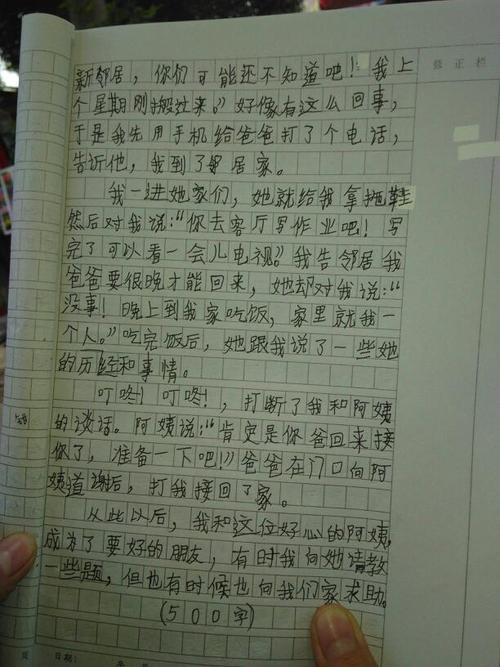 新邻居，你们可能还不知道吧！我上
个星期刚搬过来。”好像有这么回事，
于是我先用手机给爸爸打了个电话，
告诉他，我到了邻居家。
我一进她家们，她就给我拿拖鞋
然后对我说：“你去客厅写作业吧！写
完了可以看一会儿电视。”我告邻居我
爸爸要很晚才能回来，她却对我说：“
没事！晚上到我家吃饭，家里就我一
个人。”吃完饭后，她跟我说了一些她
的历经和事情。
叮咚！叮咚！，打断了我和阿姨
的谈话。阿姨说：“肯定是你爸回来接
你了，准备一下吧！”爸爸在门口向阿
姨道谢后，打我接回了家。
从此以后，我和这位好心的阿姨，
成为了要好的朋友，有时我向她请教
一些题，但也有时候也向我们家求助。
(500字)
修正栏
日期：